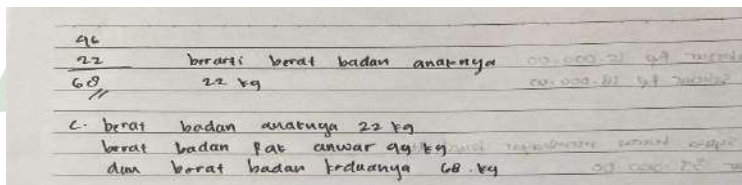 46
22 berarti berat badan anaknya
68 22 kg
c. berat badan anaknya 22 kg
berat badan Pak anwar 49 kg
dan berat badan keduanya 68 kg